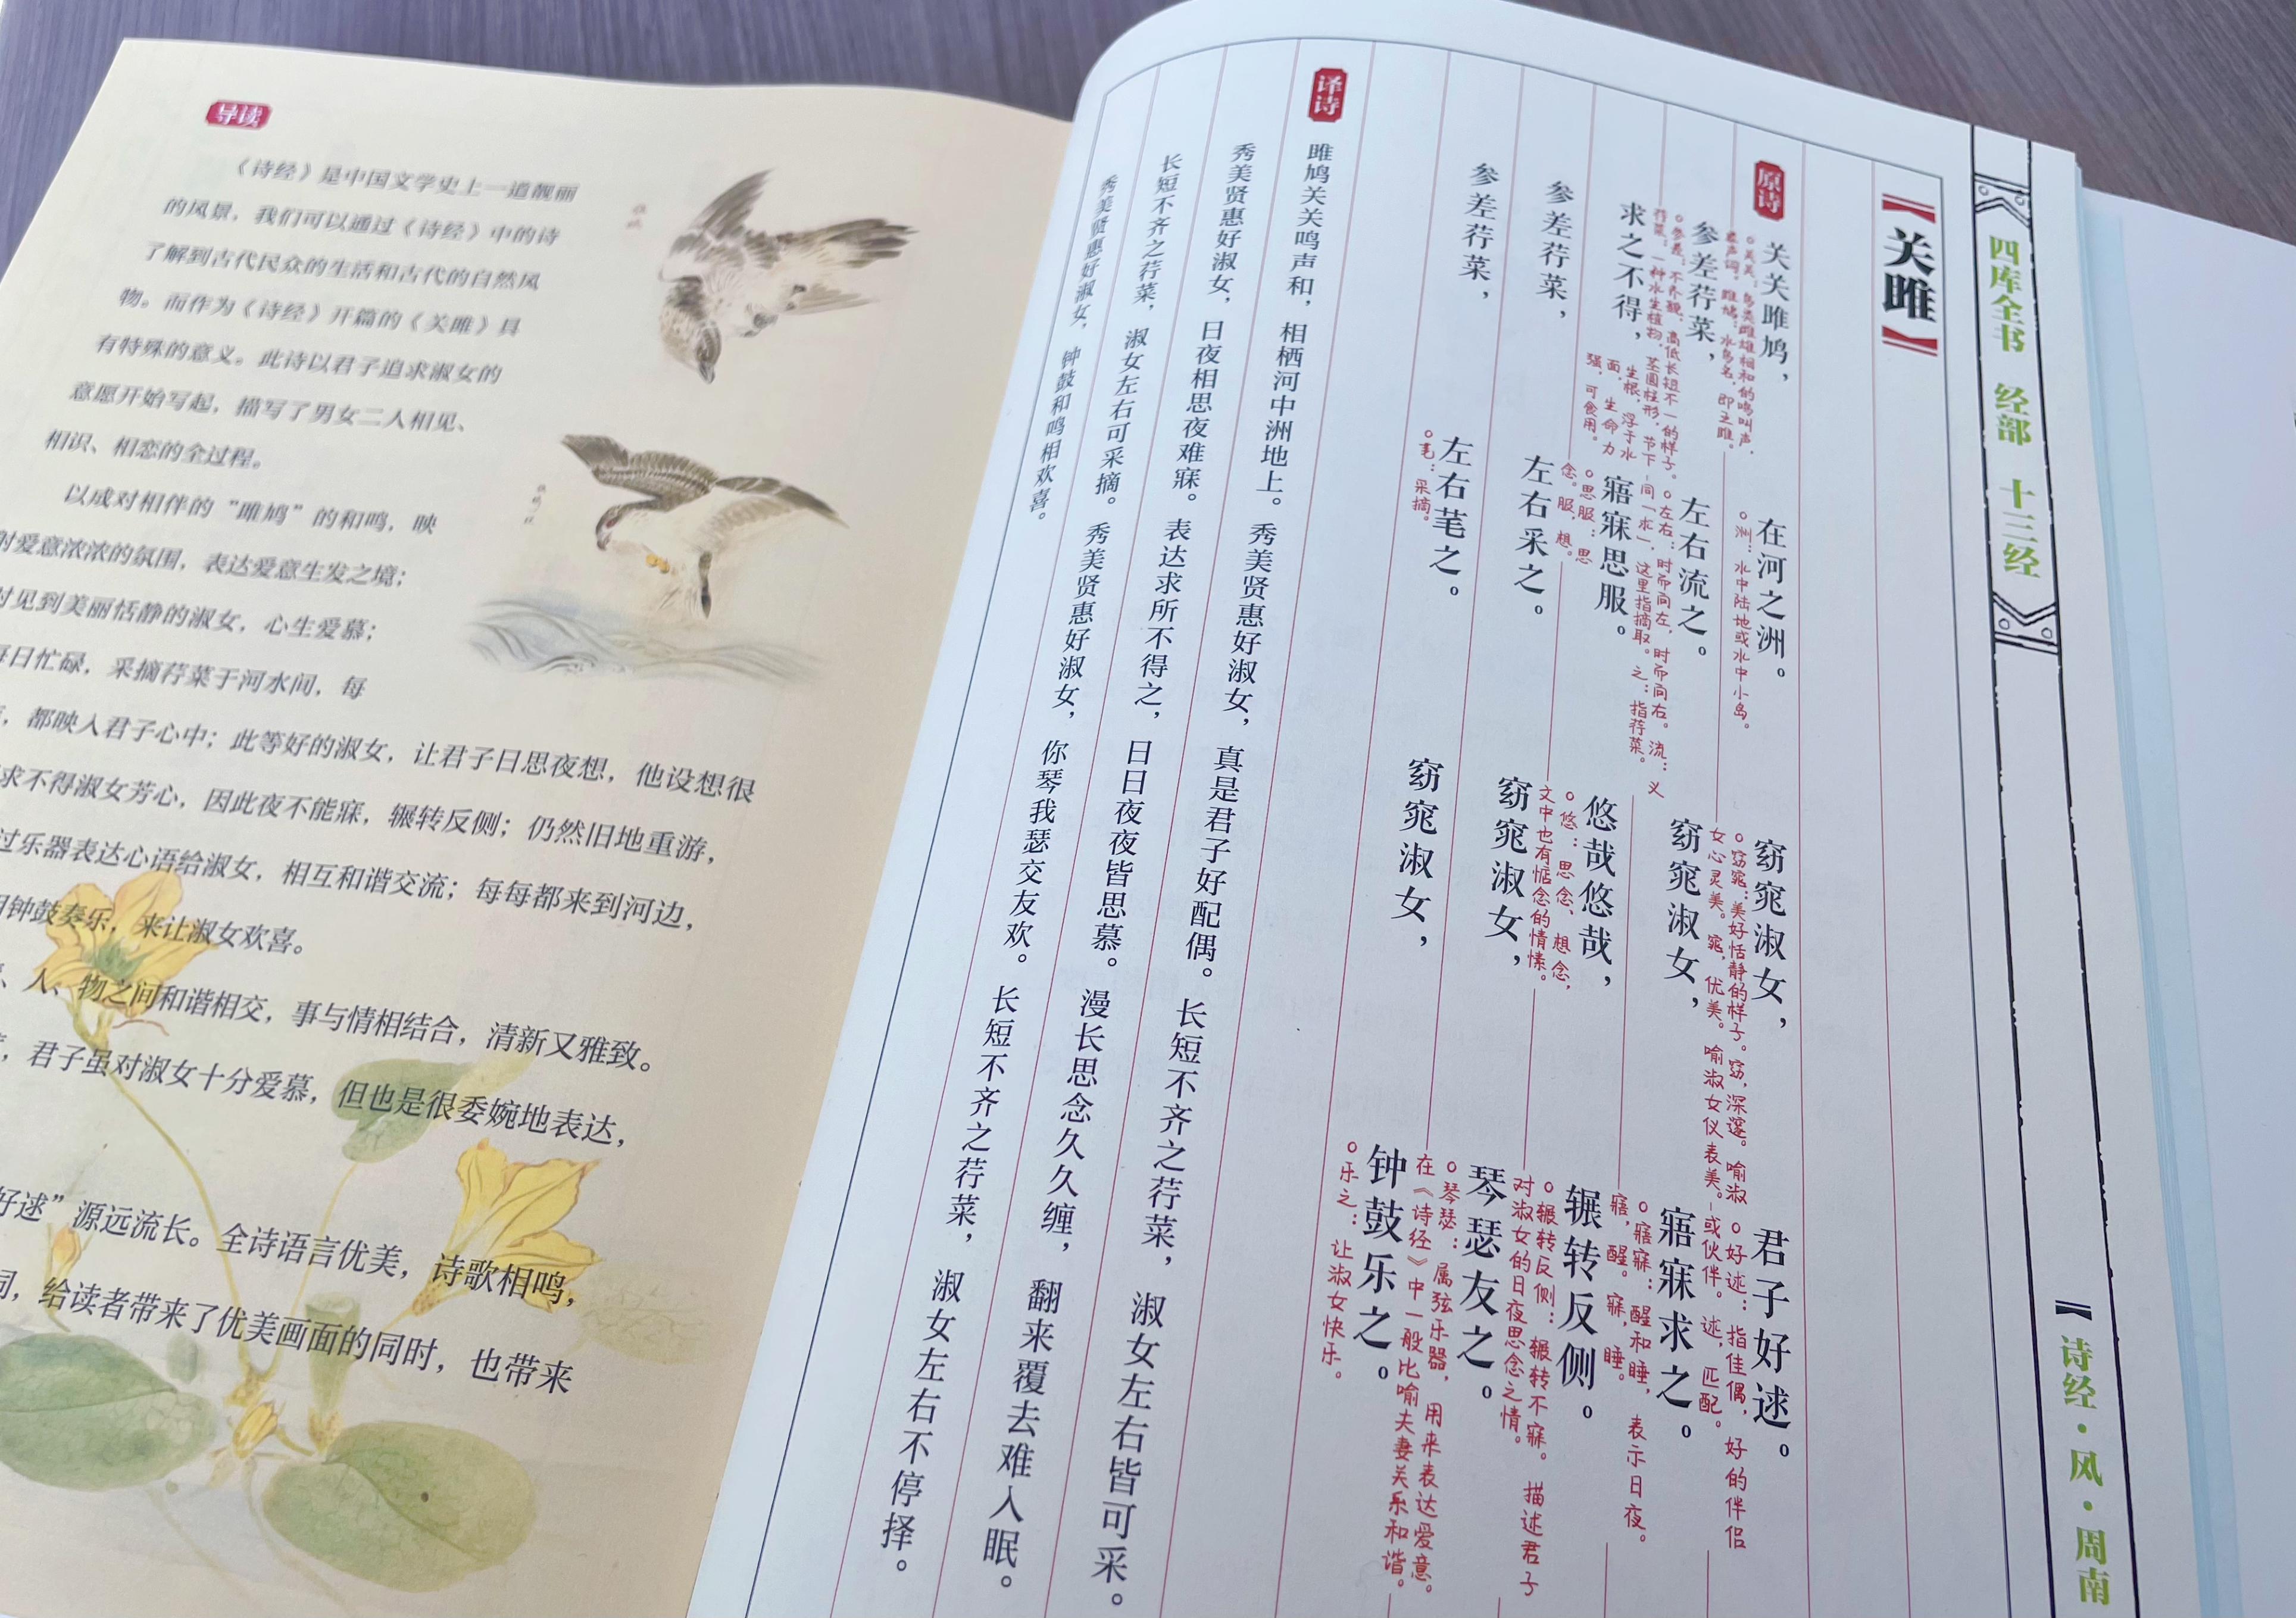 导读
《诗经》是中国文学史上一道靓丽
的风景，我们可以通过《诗经》中的诗
了解到古代民众的生活和古代的自然风
物。而作为《诗经》开篇的《关雎》具
有特殊的意义。此诗以君子追求淑女的
意愿开始写起，描写了男女二人相见、
相识、相恋的全过程。
以成对相伴的“雎鸠”的和鸣，映
射爱意浓浓的氛围，表达爱意生发之境；
时见到美丽恬静的淑女，心生爱慕；
每日忙碌，采摘荇菜于河水间，每
，都映入君子心中；此等好的淑女，让君子日思夜想，他设想很
求不得淑女芳心，因此夜不能寐，辗转反侧；仍然旧地重游，
过乐器表达心语给淑女，相互和谐交流；每每都来到河边，
用钟鼓奏乐，来让淑女欢喜。
、人、物之间和谐相交，事与情相结合，清新又雅致。
，君子虽对淑女十分爱慕，但也是很委婉地表达，
好逑”源远流长。全诗语言优美，诗歌相鸣，
同，给读者带来了优美画面的同时，也带来
四库全书 经部 十三经
诗经·风·周南
【关雎】
原诗
关关雎鸠， 在河之洲。 窈窕淑女， 君子好逑。
○关关：鸟类雌雄相和的鸣叫声，
拟声词。雎鸠：水鸟名，即王雎。
○洲：水中陆地或水中小岛。
○窈窕：美好恬静的样子。窈，深邃。喻淑
女心灵美。窕，优美。喻淑女仪表美。
○好逑：指佳偶，好的伴侣
或伙伴。逑，匹配。
参差荇菜， 左右流之。 窈窕淑女， 寤寐求之。
○参差：不齐貌，高低长短不一的样子。
荇菜：一种水生植物，茎圆柱形，节下
生根，浮于水
面，生命力
强，可食用。
○左右：时而向左，时而向右。流：义
同“求”，这里指摘取。之：指荇菜。
○寤寐：醒和睡，表示日夜。
寤，醒。寐，睡。
求之不得， 寤寐思服。 悠哉悠哉， 辗转反侧。
○思服：思
念。服，想。
○悠：思念、想念，
文中也有惦念的情愫。
○辗转反侧：辗转不寐。描述君子
对淑女的日夜思念之情。
参差荇菜， 左右采之。 窈窕淑女， 琴瑟友之。
○琴瑟：属弦乐器，用来表达爱意。
在《诗经》中一般比喻夫妻关系和谐。
参差荇菜， 左右芼之。 窈窕淑女， 钟鼓乐之。
○芼：采摘。
○乐之：让淑女快乐。
译诗
雎鸠关关鸣声和，相栖河中洲地上。秀美贤惠好淑女，真是君子好配偶。长短不齐之荇菜，淑女左右皆可采。
秀美贤惠好淑女，日夜相思夜难寐。表达求所不得之，日日夜夜皆思慕。漫长思念久久缠，翻来覆去难入眠。
长短不齐之荇菜，淑女左右可采摘。秀美贤惠好淑女，你琴我瑟交友欢。长短不齐之荇菜，淑女左右不停择。
秀美贤惠好淑女，钟鼓和鸣相欢喜。